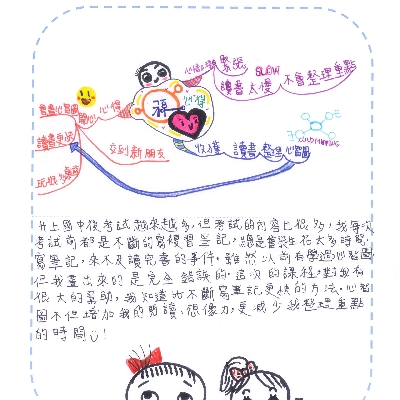 緊張
讀書太慢
不會整理重點
心得
開心
交到新朋友
收穫
讀書
整理
心智圖
升上國中後考試越來越多,但考試的內容比很多,我每次
考試前都是不斷的寫複習筆記,總是會花太多時間
寫筆記,來不及讀完書的事件。雖然以前有學過心智圖
但我畫出來的是完全錯誤的。這次的課程,對我有
很大的幫助,我知道比不斷寫筆記更快的方法。心智
圖不但增加我的閱讀、想像力,更減少我整理重點
的時間!